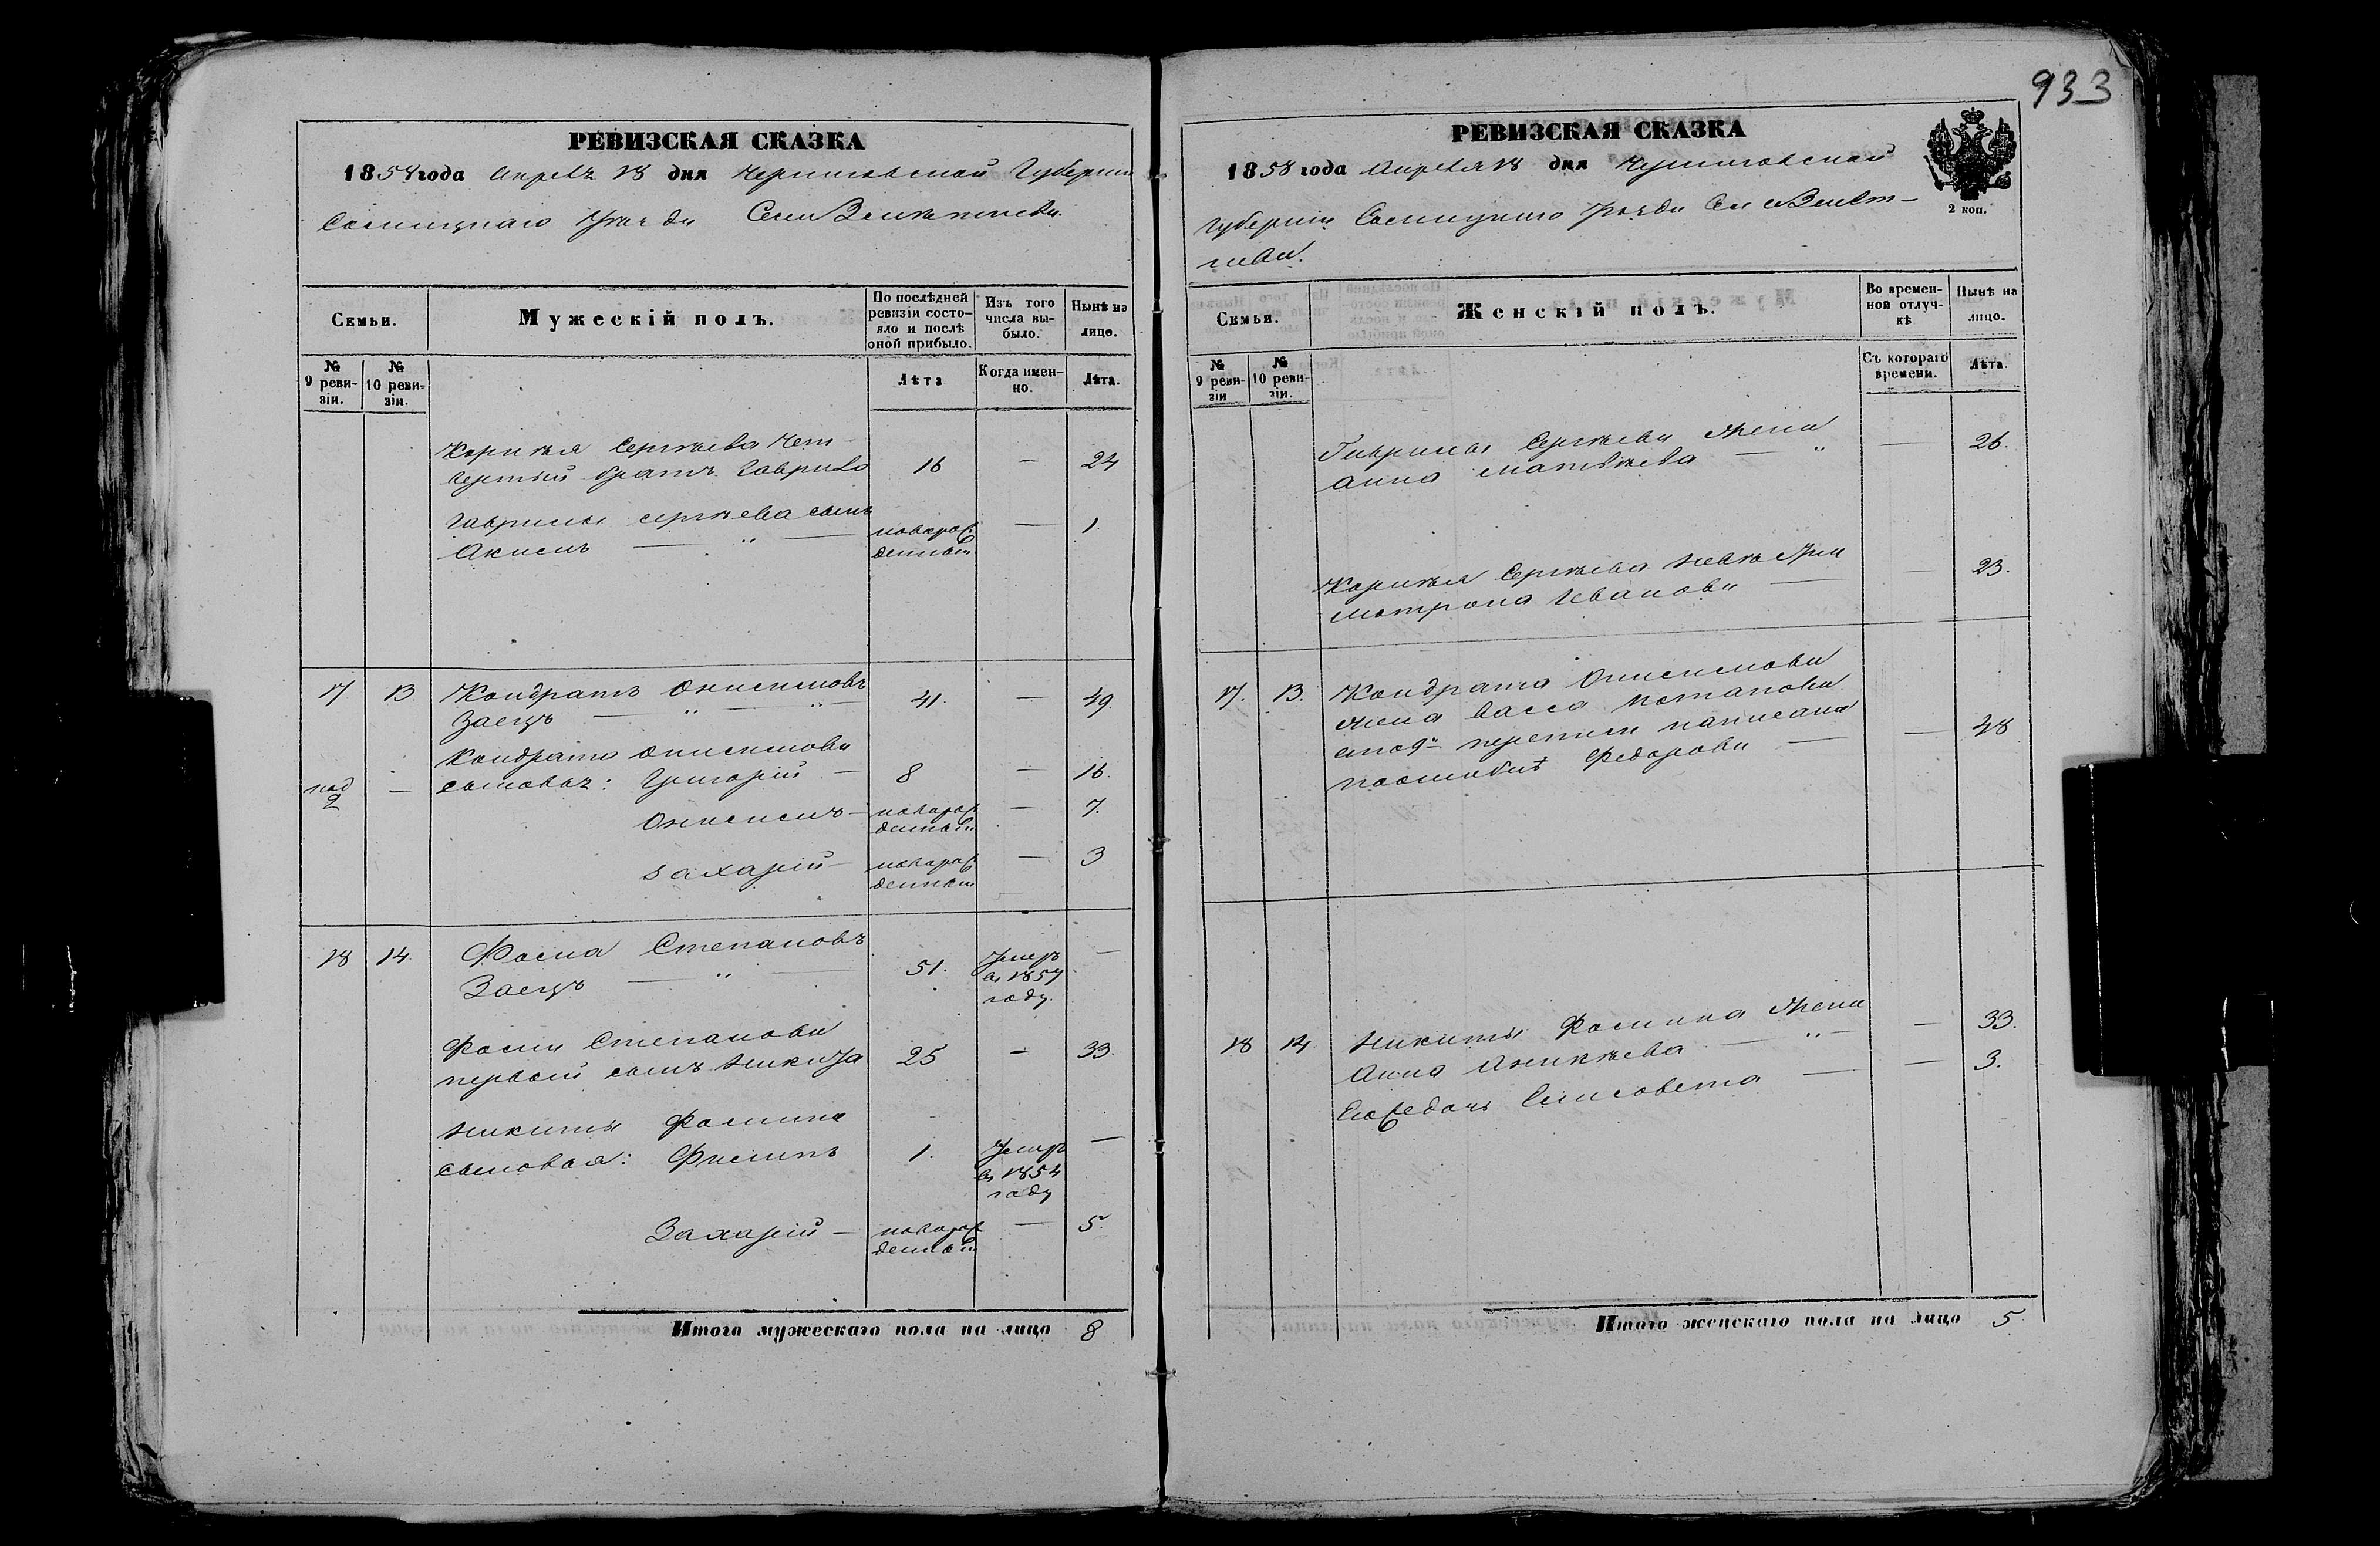 933
РЕВИЗСКАЯ СКАЗКА
1858 года Апреля 18 дня Черниговской Губернии
Сосницкаго Уѣзда Села
Семьи.
Мужескій полъ.
По послѣдней ревизіи состояло и послѣ оной прибыло.
Изъ того числа выбыло.
Нынѣ на лице.
№ 9 ревизіи.
№ 10 ревизіи.
Лѣта
Когда именно.
Лѣта.
Корнѣя Сергѣева чет-
вертый братъ Гаврило 16 — 24
Гаврилы Сергѣева сынъ
Акимъ — " — новорож-
денный — 1.
17 13. Кондратъ Онисимовъ
Заецъ — " — " — 41. — 49.
Кондрата Онисимова
под 2 — сыновья: Григорій — 8 — 16.
Онисимъ — новорож-
денный — 7.
Захарій — новорож-
денный — 3
18 14 Фома Степановъ
Заецъ — " — 51. Умеръ
въ 1857
году. —
Фомы Степанова
первой сынъ Никита 25 — 33.
Никиты Фомина
сыновья: Филипъ 1. Умеръ
въ 1854
году —
Захарій — новорож-
денный — 5.
Итого мужескаго пола на лицо 8
РЕВИЗСКАЯ СКАЗКА
1858 года Апреля 18 дня Черниговской
2 коп.
Губерніи Сосницкаго Уѣзда Села
Семьи.
Женскій полъ.
Во временной отлучкѣ
Нынѣ на лицо.
№ 9 ревизіи
№ 10 ревизіи.
Съ котораго времени.
Лѣта.
Гаврилы Сергѣева жена
Анна Матвѣева — " — 26.
Корнѣя Сергѣева
Мотрона Иванова — — 23.
17. 13. Кондрата Онисимова
жена Васса Потапова
по 9й переписи написана
поошибкѣ Федорова — — 48
18 14 Никиты Фомина жена — 33.
Анна Аникѣева — " —
Его дочь Елисовета — — 3.
Итого женскаго пола на лицо 5.